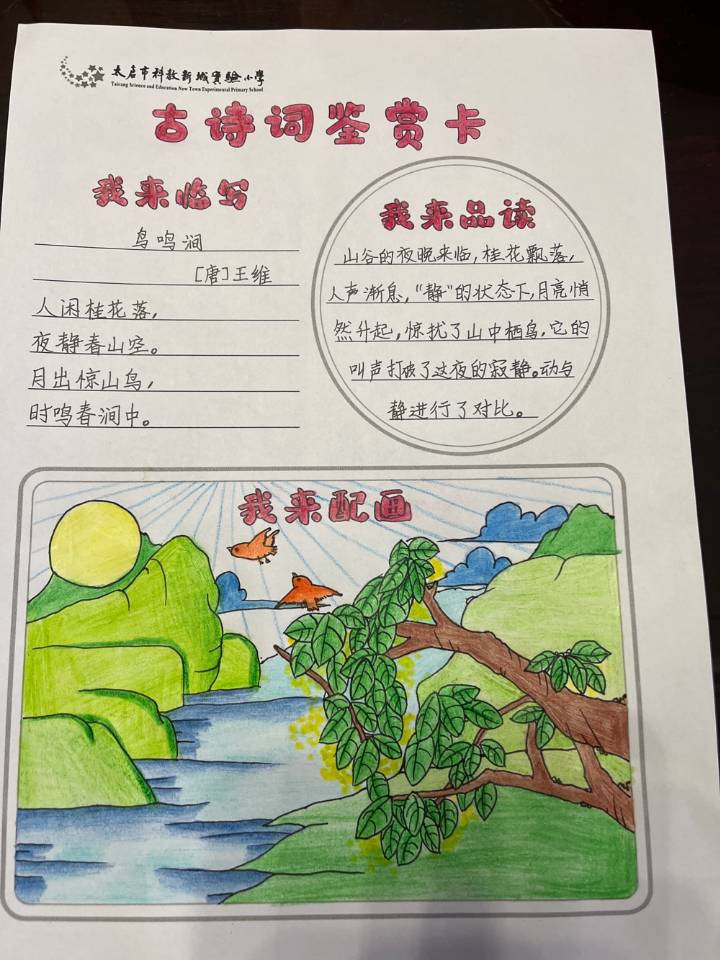 太仓市科教新城实验小学
Taicang Science and Education New Town Experimental Primary School
古诗词鉴赏卡
我来临写
鸟鸣涧
[唐]王维
人闲桂花落,
夜静春山空。
月出惊山鸟,
时鸣春涧中。
我来品读
山谷的夜晚来临,桂花飘落,
人声渐息,“静”的状态下,月亮悄
然升起,惊扰了山中栖鸟,它的
叫声打破了这夜的寂静。动与
静进行了对比。
我来配画